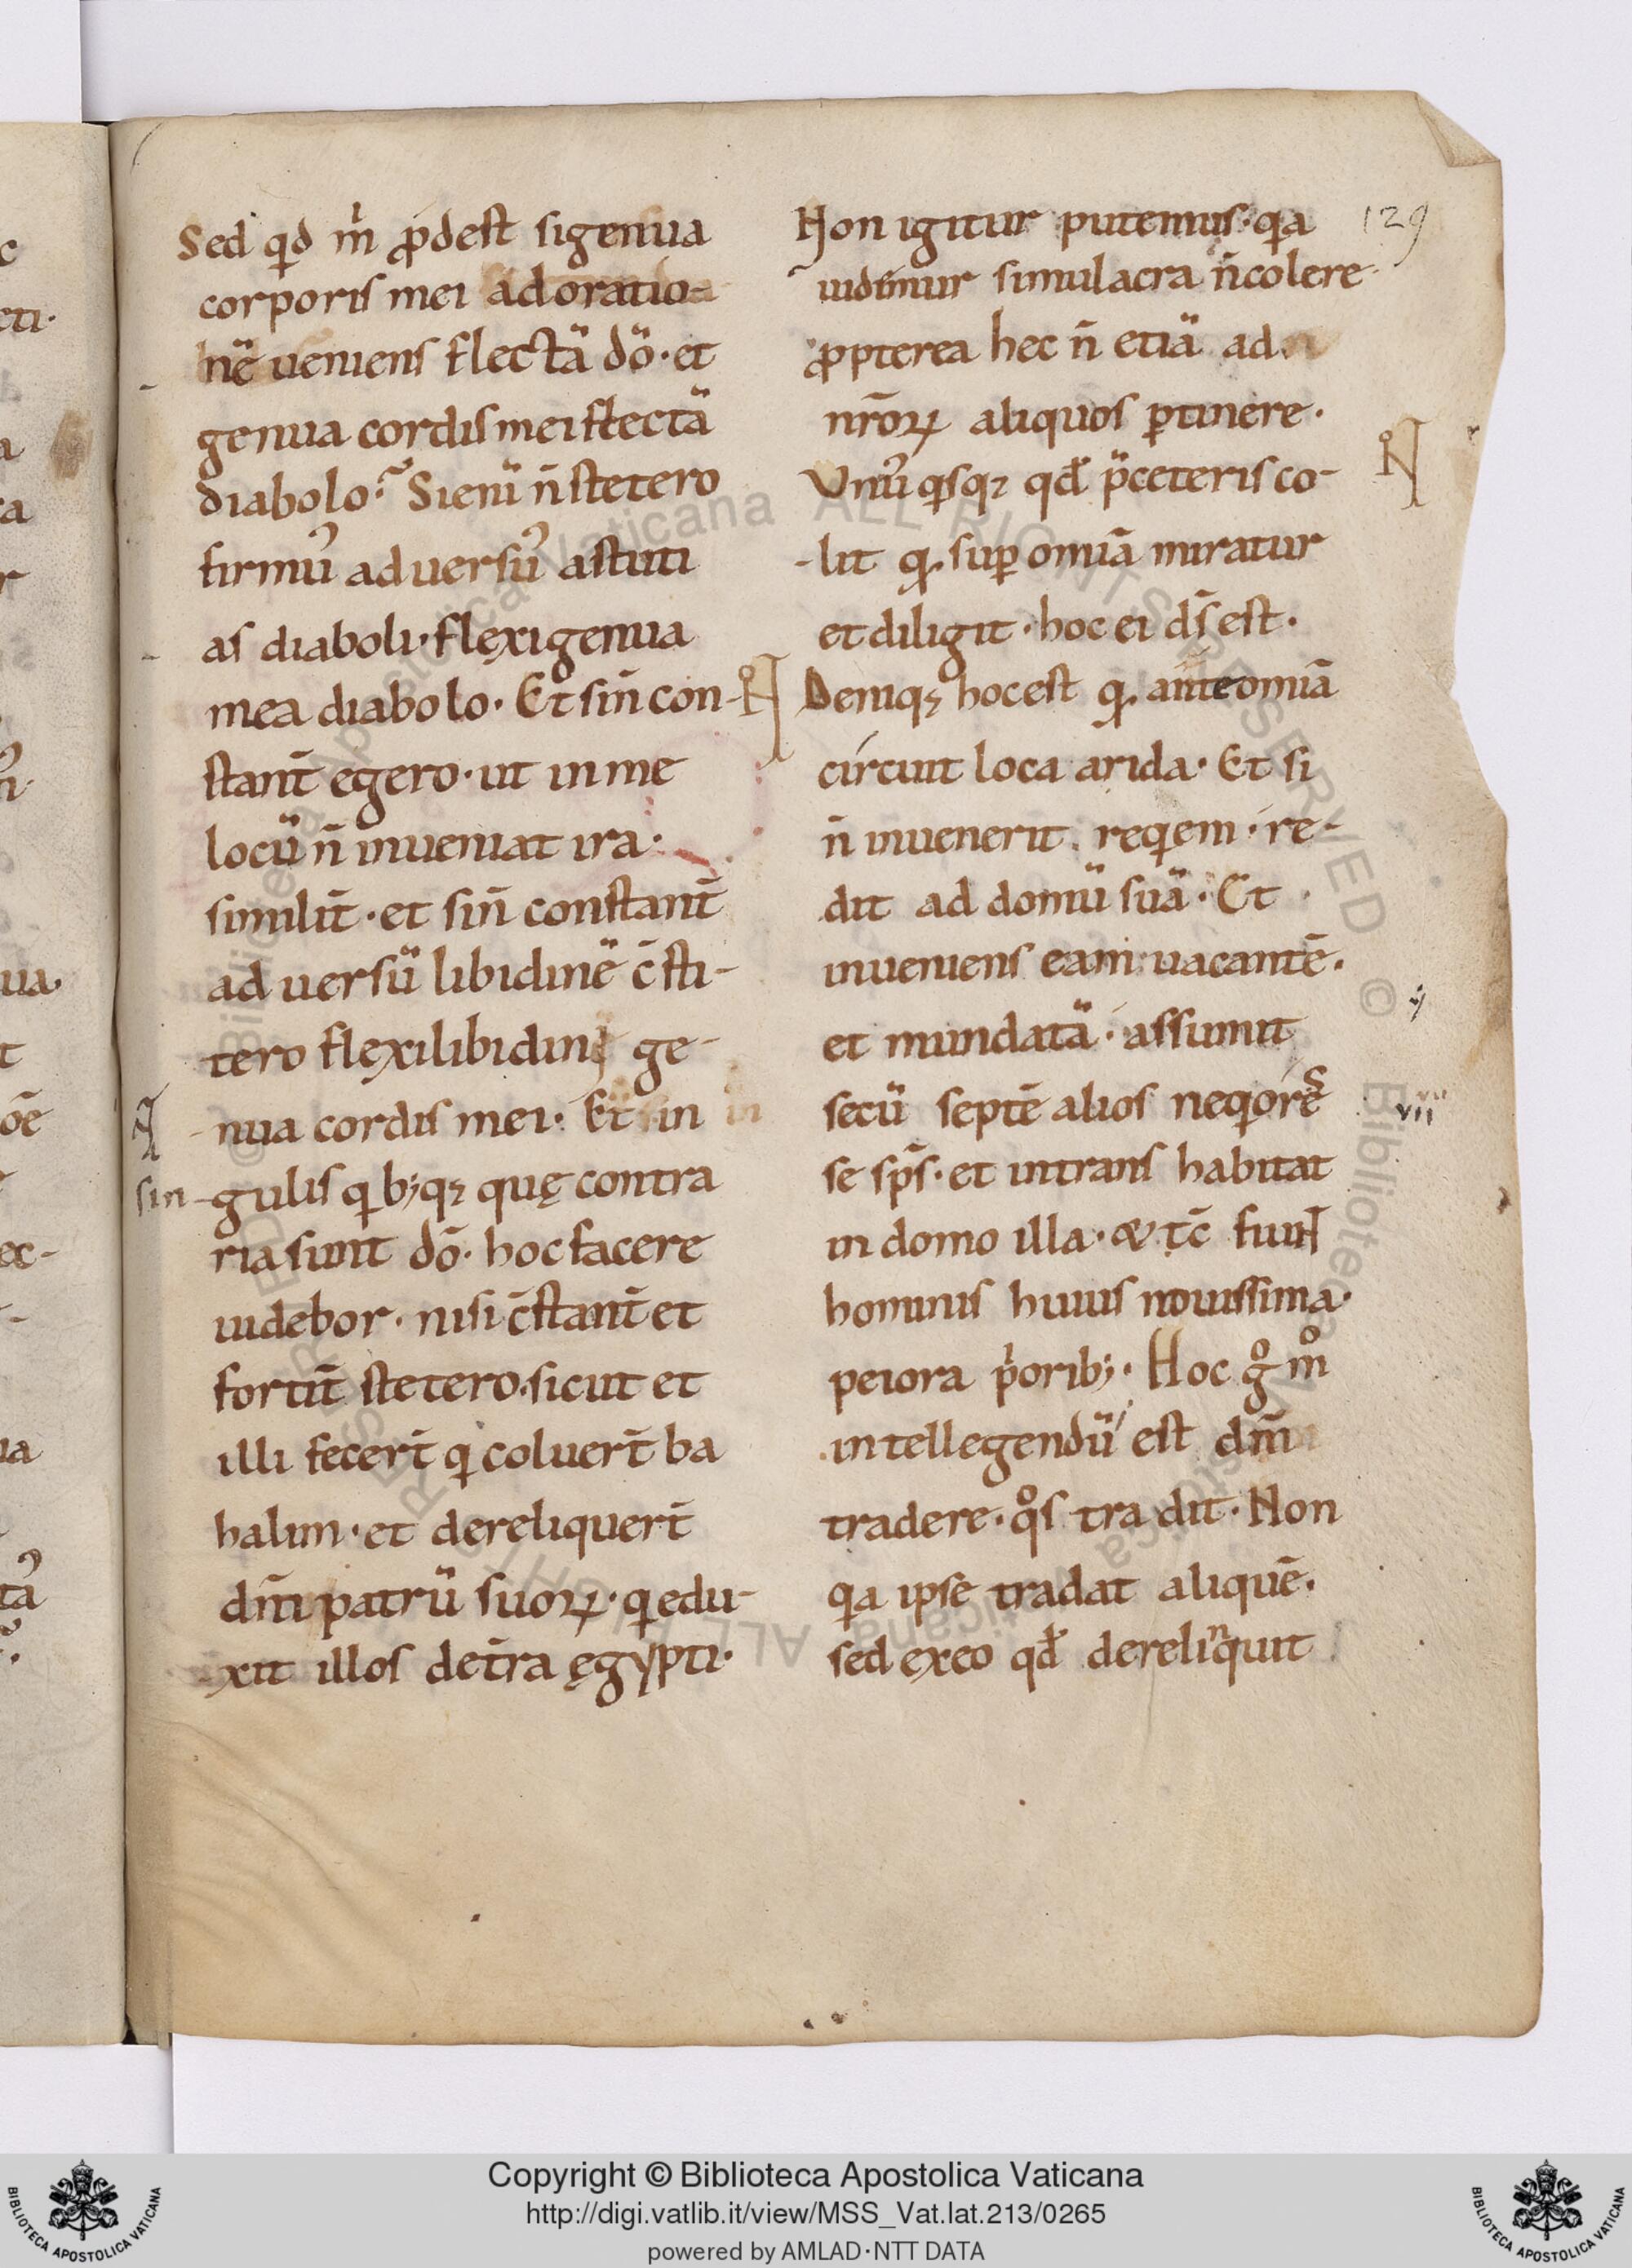 Sed qd m̍ p̄dest sigenua
corporis mei adoratio-
nē ueniens flectā dō· et
genua cordis mei flectā
diabolo? Si enī n̄ stetero
firmu᾽ aduersu᾽ astuti
as diaboli· flexi genua
mea diabolo· Et sin̄ con-
stant̄ egero· ut in me
locū n̄ inueniat ira·
similit̄· et sin̄ constant̄
aduersū libidinē c̄sti-
tero flexi libidini ge-
nua cordis mei· Et in
sin-gulis qb;q; quę contra
ria sunt dō· hoc facere
uidebor· nisi c̄stant̄ et
fortit̄ stetero· sicut et
illi fecer̄t q coluer̄t ba
halim· et dereliquer̄t
dm̄ patrū suoꝝ· q edu-
xit illos det̄ra ęgypti·
Non igitur putemus· qa
uidemur simulacra n̄ colere·
ꝓpterea hec n̄ etiā ad
nr̄oꝝ aliquos ꝑtinere·
Vnu᾽qsq; qd̄ p̄ceteris co-
lit q· suꝑ omiā miratur
et diligit· hoc ei ds̄ est·
Deniq; hoc est q· ante omiā
circuit loca arida· Et si
n̄ inuenerit reqem· re-
dit ad domū suā· Et
inueniens eam uacantē·
et mundatā· assumit
secū septē alios neqores
se sps̄· et intrans habitat
in domo illa· & tc̄ fiunt
hominis huius nouissima·
peiora p̍orib;· Hoc gͦ mͦ
intellegendū est dm̄
tradere· qͦs tradit· Non
qa ipse tradat aliquē·
sed exeo qd̄ derelinquit
129
vii